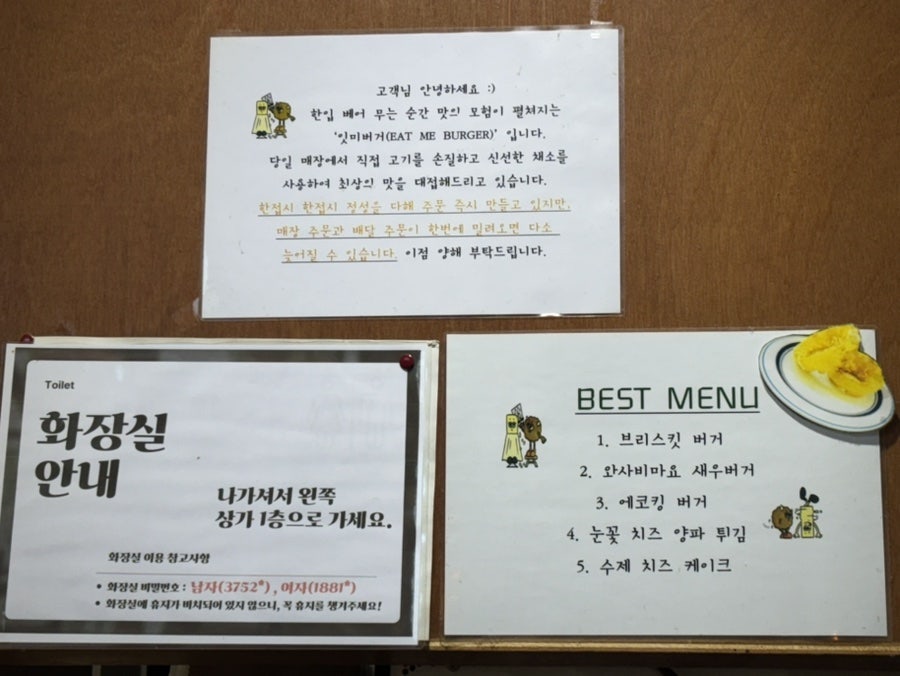 고객님 안녕하세요 :)
한입 베어 무는 순간 맛의 모험이 펼쳐지는
'잇미버거(EAT ME BURGER)' 입니다.
당일 매장에서 직접 고기를 손질하고 신선한 채소를
사용하여 최상의 맛을 대접해드리고 있습니다.
한접시 한접시 정성을 다해 주문 즉시 만들고 있지만,
매장 주문과 배달 주문이 한번에 밀려오면 다소
늦어질 수 있습니다. 이점 양해 부탁드립니다.
Toilet
화장실
안내
나가셔서 왼쪽
상가 1층으로 가세요.
화장실 이용 참고사항
• 화장실 비밀번호 : 남자(3752*) , 여자(1881*)
• 화장실에 휴지가 비치되어 있지 않으니, 꼭 휴지를 챙겨주세요!
BEST MENU
1. 브리스킷 버거
2. 와사비마요 새우버거
3. 에코킹 버거
4. 눈꽃 치즈 양파 튀김
5. 수제 치즈 케이크